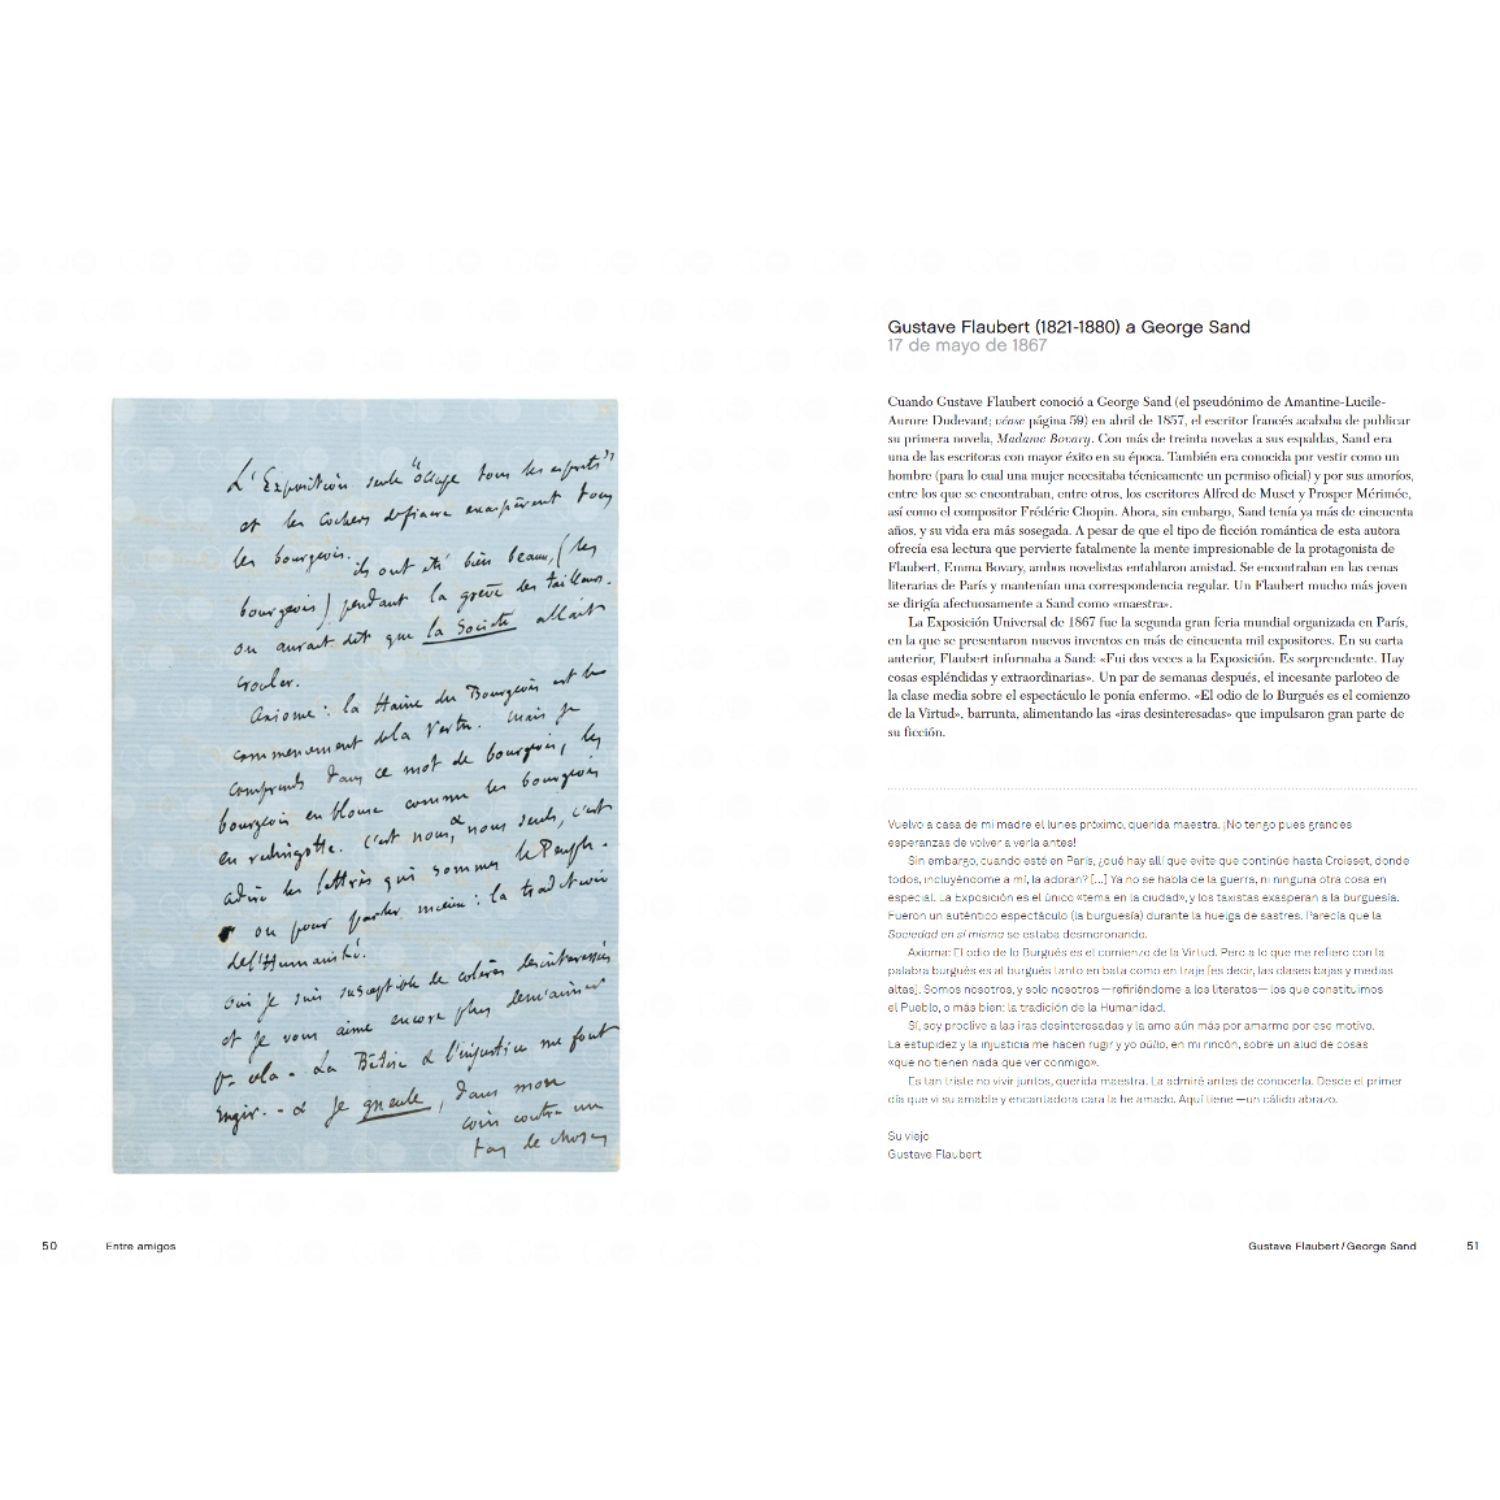 L'Exposition seule "occupe tous les esprits"
et les cochers de fiacre exaspèrent tous
les bourgeois. ils ont été bien beaux, (les
bourgeois) pendant la grève des tailleurs.
on aurait dit que la Société allait
crouler.
Axiome : la Haine du Bourgeois est le
commencement de la Vertu. mais je
comprends dans ce mot de bourgeois, les
bourgeois en blouse comme les bourgeois
en redingotte. C'est nous, & nous seuls, c'est
à dire les lettrés qui sommes le Peuple -
ou pour parler mieux : la tradition
de l'Humanité.
oui je suis susceptible de colères désintéressées
et je vous aime encore plus de m'aimer
pr cela - La Bêtise & l'injustice me font
rugir. - & je gueule, dans mon
coin contre un
tas de choses
50
Entre amigos
Gustave Flaubert (1821-1880) a George Sand
17 de mayo de 1867
Cuando Gustave Flaubert conoció a George Sand (el pseudónimo de Amantine-Lucile-
Aurore Dudevant; véase página 59) en abril de 1857, el escritor francés acababa de publicar
su primera novela, Madame Bovary. Con más de treinta novelas a sus espaldas, Sand era
una de las escritoras con mayor éxito en su época. También era conocida por vestir como un
hombre (para lo cual una mujer necesitaba técnicamente un permiso oficial) y por sus amoríos,
entre los que se encontraban, entre otros, los escritores Alfred de Muset y Prosper Mérimée,
así como el compositor Frédéric Chopin. Ahora, sin embargo, Sand tenía ya más de cincuenta
años, y su vida era más sosegada. A pesar de que el tipo de ficción romántica de esta autora
ofrecía esa lectura que pervierte fatalmente la mente impresionable de la protagonista de
Flaubert, Emma Bovary, ambos novelistas entablaron amistad. Se encontraban en las cenas
literarias de París y mantenían una correspondencia regular. Un Flaubert mucho más joven
se dirigía afectuosamente a Sand como «maestra».
La Exposición Universal de 1867 fue la segunda gran feria mundial organizada en París,
en la que se presentaron nuevos inventos en más de cincuenta mil expositores. En su carta
anterior, Flaubert informaba a Sand: «Fui dos veces a la Exposición. Es sorprendente. Hay
cosas espléndidas y extraordinarias». Un par de semanas después, el incesante parloteo de
la clase media sobre el espectáculo le ponía enfermo. «El odio de lo Burgués es el comienzo
de la Virtud», barrunta, alimentando las «iras desinteresadas» que impulsaron gran parte de
su ficción.
Vuelvo a casa de mi madre el lunes próximo, querida maestra. ¡No tengo pues grandes
esperanzas de volver a verla antes!
Sin embargo, cuando esté en París, ¿qué hay allí que evite que continúe hasta Croisset, donde
todos, incluyéndome a mí, la adoran? [...] Ya no se habla de la guerra, ni ninguna otra cosa en
especial. La Exposición es el único «tema en la ciudad», y los taxistas exasperan a la burguesía.
Fueron un auténtico espectáculo (la burguesía) durante la huelga de sastres. Parecía que la
Sociedad en sí misma se estaba desmoronando.
Axioma: El odio de lo Burgués es el comienzo de la Virtud. Pero a lo que me refiero con la
palabra burgués es al burgués tanto en bata como en traje [es decir, las clases bajas y medias
altas]. Somos nosotros, y solo nosotros —refiriéndome a los literatos— los que constituimos
el Pueblo, o más bien: la tradición de la Humanidad.
Sí, soy proclive a las iras desinteresadas y la amo aún más por amarme por ese motivo.
La estupidez y la injusticia me hacen rugir y yo aúllo, en mi rincón, sobre un alud de cosas
«que no tienen nada que ver conmigo».
Es tan triste no vivir juntos, querida maestra. La admiré antes de conocerla. Desde el primer
día que vi su amable y encantadora cara la he amado. Aquí tiene —un cálido abrazo.
Su viejo
Gustave Flaubert
Gustave Flaubert/George Sand
51